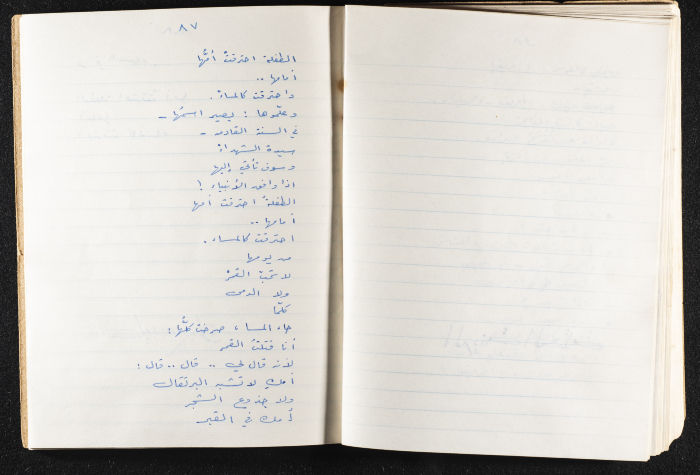 ٨٧
الطفلة احترقتْ أمُّها
أمامها ..
واحترقت كالمساءْ.
وعلّموها : يصير اسمُها -
في السنة القادمه -
سيدةَ الشهداءْ
وسوف تأتي إليها
اذا وافق الأنبياء !
الطفلةُ احترقت أمها
أمامها ..
احترقت كالمساء .
من يومها
لا تحبّ القمرْ
ولا الدمى
كلّما
جاء المسا ، صرخت كلُّها :
أنا قتلتُ القمر
لأنه قال لي .. قال .. قال :
أمكِ لا تشبه البرتقال
ولا جذوع الشجر
أمك في القبر